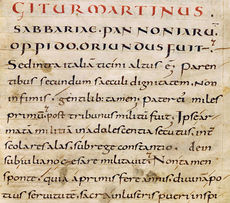 GITUR MARTINUS.
SABBARIAE. PANNONIARŪ.
OPPIDO. ORIUNDUS FUIT.
Sed intra italiā ticini altus ē. Paren
tibus secundum saeculi dignitatem non
infimis. gentilib; tamen. Pater ei; miles
primū. post tribunus militū fuit. Ipse ar
mata militiā in adolescentia secutus. int
scolares alas. sub rege constantio. dein
sub iuliano cesare militavit. Non tamen
sponte. quia a primis fere annis. divina po
tius servitute. sacra inlustris pueri inspi